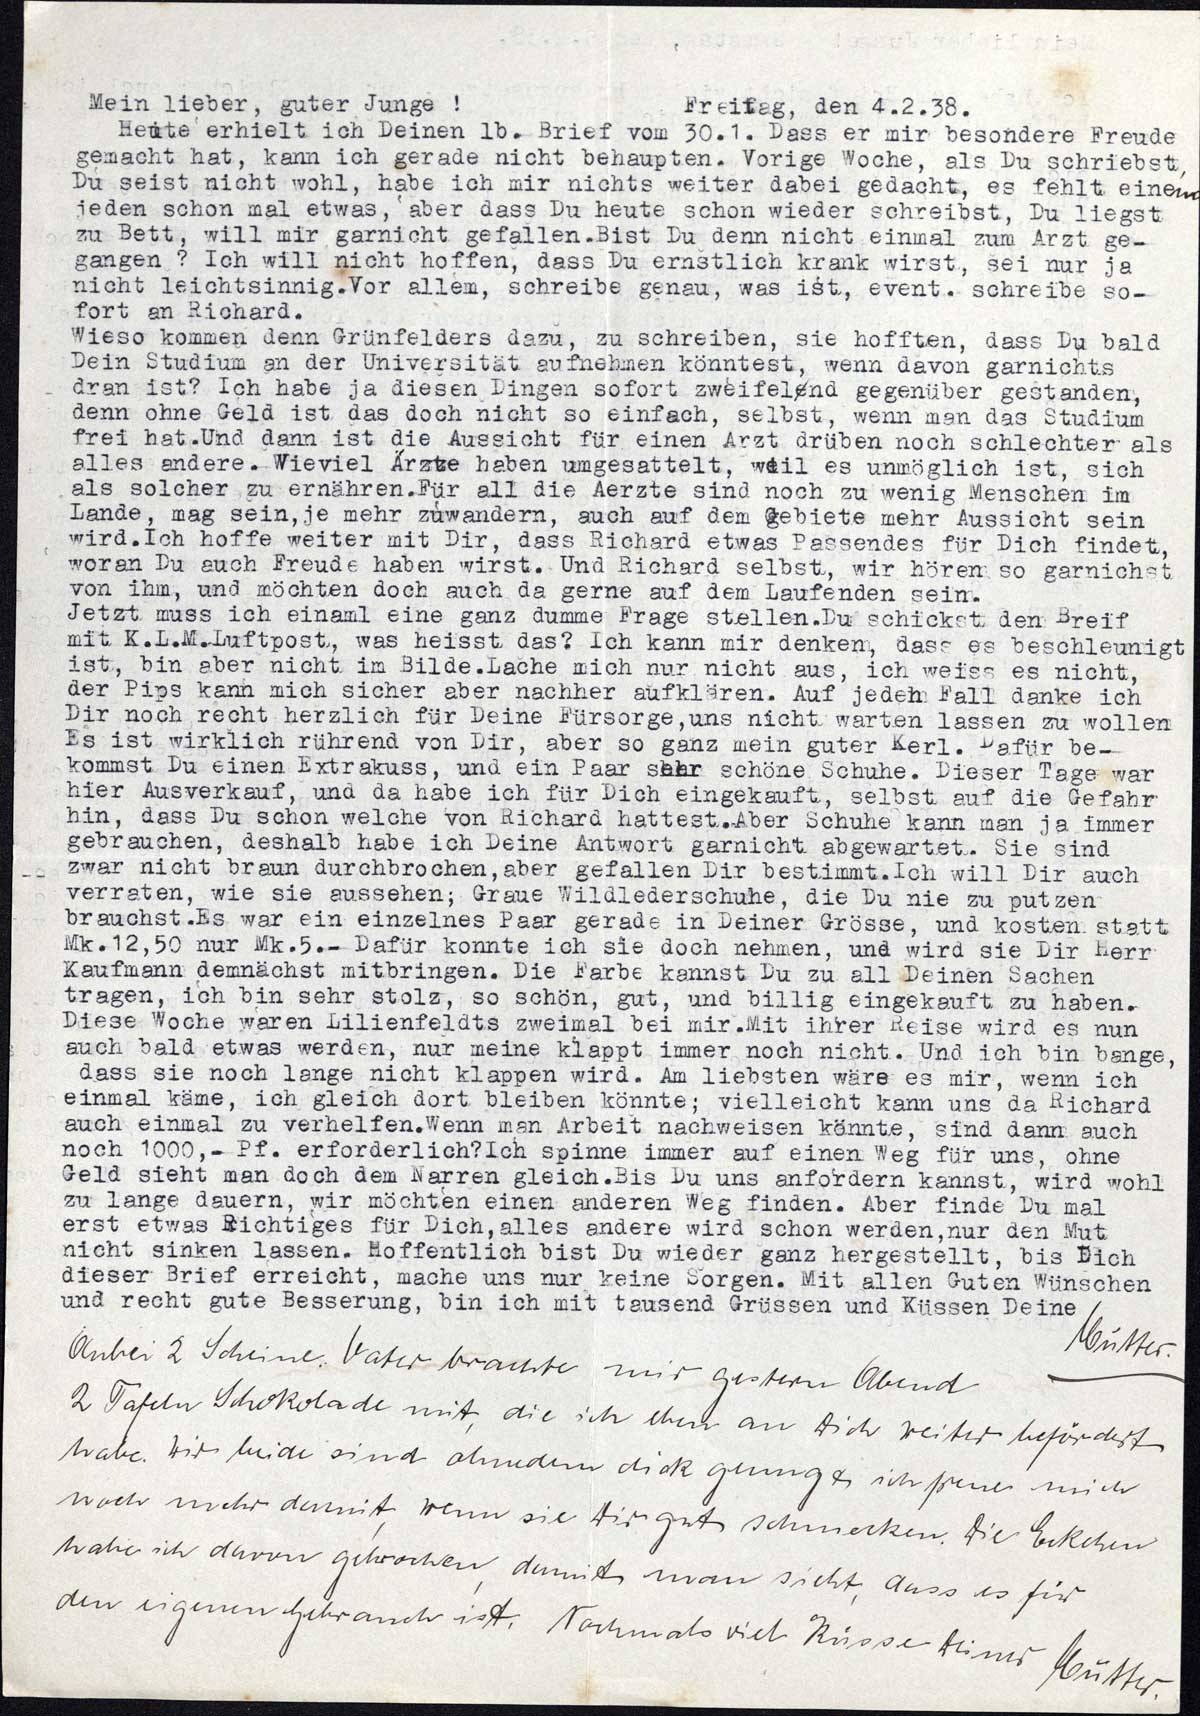 Mein lieber, guter Junge ! Freitag, den 4.2.38.
Heute erhielt ich Deinen lb. Brief vom 30.1. Dass er mir besondere Freude
gemacht hat, kann ich gerade nicht behaupten. Vorige Woche, als Du schriebst,
Du seist nicht wohl, habe ich mir nichts weiter dabei gedacht, es fehlt einem
jeden schon mal etwas, aber dass Du heute schon wieder schreibst, Du liegst
zu Bett, will mir garnicht gefallen.Bist Du denn nicht einmal zum Arzt ge-
gangen ? Ich will nicht hoffen, dass Du ernstlich krank wirst, sei nur ja
nicht leichtsinnig.Vor allem, schreibe genau, was ist, event. schreibe so-
fort an Richard.
Wieso kommen denn Grünfelders dazu, zu schreiben, sie hofften, dass Du bald
Dein Studium an der Universität aufnehmen könntest, wenn davon garnichts
dran ist? Ich habe ja diesen Dingen sofort zweifelend gegenüber gestanden,
denn ohne Geld ist das doch nicht so einfach, selbst, wenn man das Studium
frei hat.Und dann ist die Aussicht für einen Arzt drüben noch schlechter als
alles andere. Wieviel Ärzte haben umgesattelt, weil es unmöglich ist, sich
als solcher zu ernähren.Für all die Aerzte sind noch zu wenig Menschen im
Lande, mag sein,je mehr zuwandern, auch auf dem Gebiete mehr Aussicht sein
wird.Ich hoffe weiter mit Dir, dass Richard etwas Passendes für Dich findet,
woran Du auch Freude haben wirst. Und Richard selbst, wir hören so garnichst
von ihm, und möchten doch auch da gerne auf dem Laufenden sein.
Jetzt muss ich einaml eine ganz dumme Frage stellen.Du schickst den Breif
mit K.L.M.Luftpost, was heisst das? Ich kann mir denken, dass es beschleunigt
ist, bin aber nicht im Bilde.Lache mich nur nicht aus, ich weiss es nicht,
der Pips kann mich sicher aber nachher aufklären. Auf jedem Fall danke ich
Dir noch recht herzlich für Deine Fürsorge,uns nicht warten lassen zu wollen
Es ist wirklich rührend von Dir, aber so ganz mein guter Kerl. Dafür be-
kommst Du einen Extrakuss, und ein Paar sehr schöne Schuhe. Dieser Tage war
hier Ausverkauf, und da habe ich für Dich eingekauft, selbst auf die Gefahr
hin, dass Du schon welche von Richard hattest.Aber Schuhe kann man ja immer
gebrauchen, deshalb habe ich Deine Antwort garnicht abgewartet. Sie sind
zwar nicht braun durchbrochen,aber gefallen Dir bestimmt.Ich will Dir auch
verraten, wie sie aussehen; Graue Wildlederschuhe, die Du nie zu putzen
brauchst.Es war ein einzelnes Paar gerade in Deiner Grösse, und kosten statt
Mk.12,50 nur Mk.5.- Dafür konnte ich sie doch nehmen, und wird sie Dir Herr
Kaufmann demnächst mitbringen. Die Farbe kannst Du zu all Deinen Sachen
tragen, ich bin sehr stolz, so schön, gut, und billig eingekauft zu haben.
Diese Woche waren Lilienfeldts zweimal bei mir.Mit ihrer Reise wird es nun
auch bald etwas werden, nur meine klappt immer noch nicht. Und ich bin bange,
dass sie noch lange nicht klappen wird. Am liebsten wäre es mir, wenn ich
einmal käme, ich gleich dort bleiben könnte; vielleicht kann uns da Richard
auch einmal zu verhelfen.Wenn man Arbeit nachweisen könnte, sind dann auch
noch 1000,- Pf. erforderlich?Ich spinne immer auf einen Weg für uns, ohne
Geld sieht man doch dem Narren gleich.Bis Du uns anfordern kannst, wird wohl
zu lange dauern, wir möchten einen anderen Weg finden. Aber finde Du mal
erst etwas Richtiges für Dich,alles andere wird schon werden,nur den Mut
nicht sinken lassen. Hoffentlich bist Du wieder ganz hergestellt, bis Dich
dieser Brief erreicht, mache uns nur keine Sorgen. Mit allen Guten Wünschen
und recht gute Besserung, bin ich mit tausend Grüssen und Küssen Deine
Mutter.
Anbei 2 Scheine. Vater brachte mir gestern Abend
2 Tafeln Schokolade mit, die ich eben an Dich weiter befördert
habe. Wir beide sind ohnedem dick genung & ich freue mich
noch mehr damit, wenn sie Dir gut schmecken. Die Eckchen
habe ich davon gebrochen, damit man sieht, dass es für
den eigenen Gebrauch ist. Nochmals viel Küsse Deiner
Mutter.